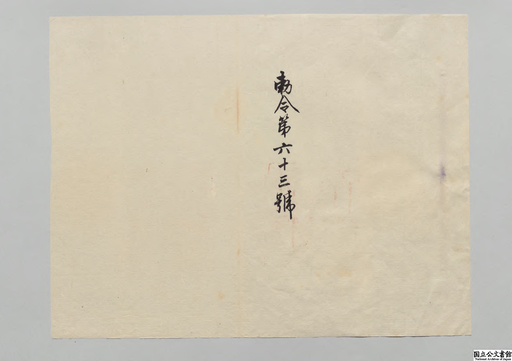 勅令第六十三號
国立公文書館
National Archives of Japan